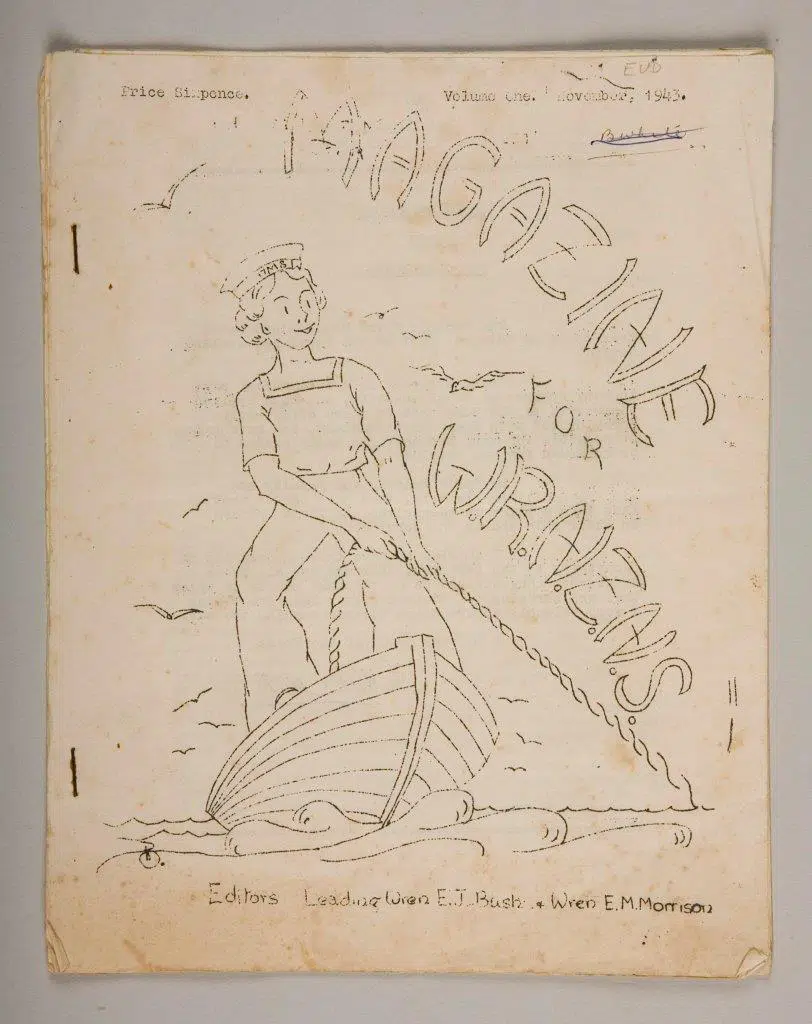 EVD
Price Sixpence. Volume One. November, 1943.
MAGAZINE
FOR
W.R.N.Z.N.S.
HMS
Editors Leading Wren E.J. Bush & Wren E.M. Morrison